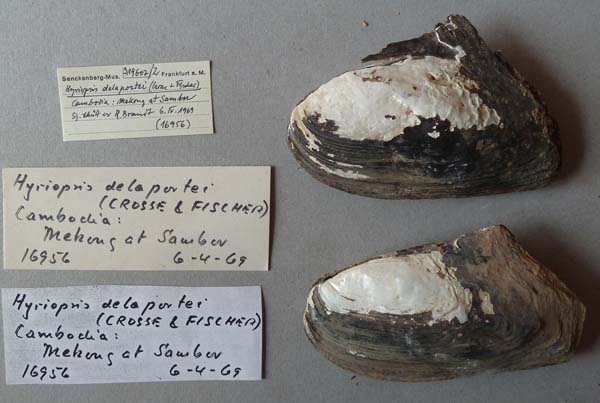 Senckenberg-Mus. 319607/2 Frankfurt a. M.
Hyriopsis delaportei (Crosse & Fischer)
Cambodia: Mekong at Sambor
R. Brandt 6. IV. 1969
(16956)
Hyriopsis delaportei
(CROSSE & FISCHER)
Cambodia:
Mekong at Sambor
16956 6-4-69
Hyriopsis delaportei
(CROSSE & FISCHER)
Cambodia:
Mekong at Sambor
16956 6-4-69